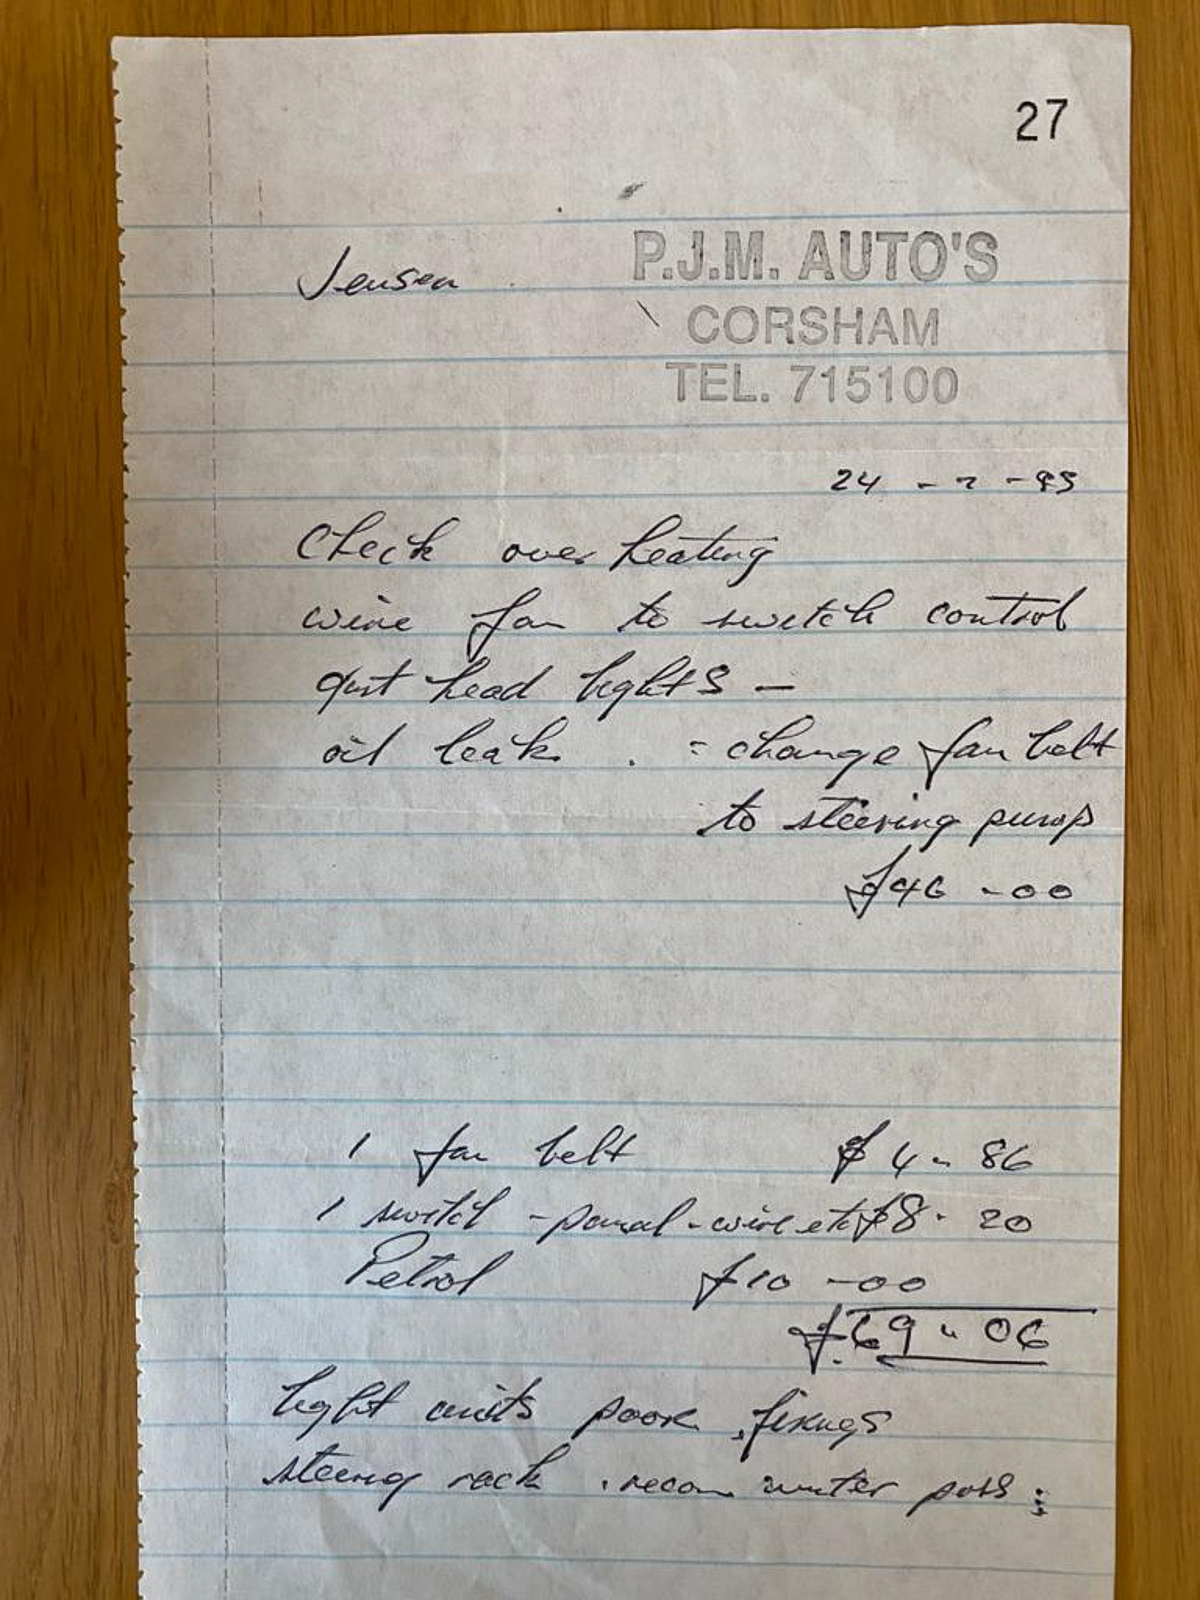 27
P.J.M. AUTO'S
CORSHAM
TEL. 715100
Jensen
24 - 7 - 95
Check over heating
wire fan to switch control
head lights -
oil leak . = change fan belt
to steering pump
£46 - 00
1 fan belt £4 - 86
1 switch - panal - wire etc £8 - 20
Petrol £10 - 00
£69 - 06
light units poor fixings
steering rack . recon winter poss :